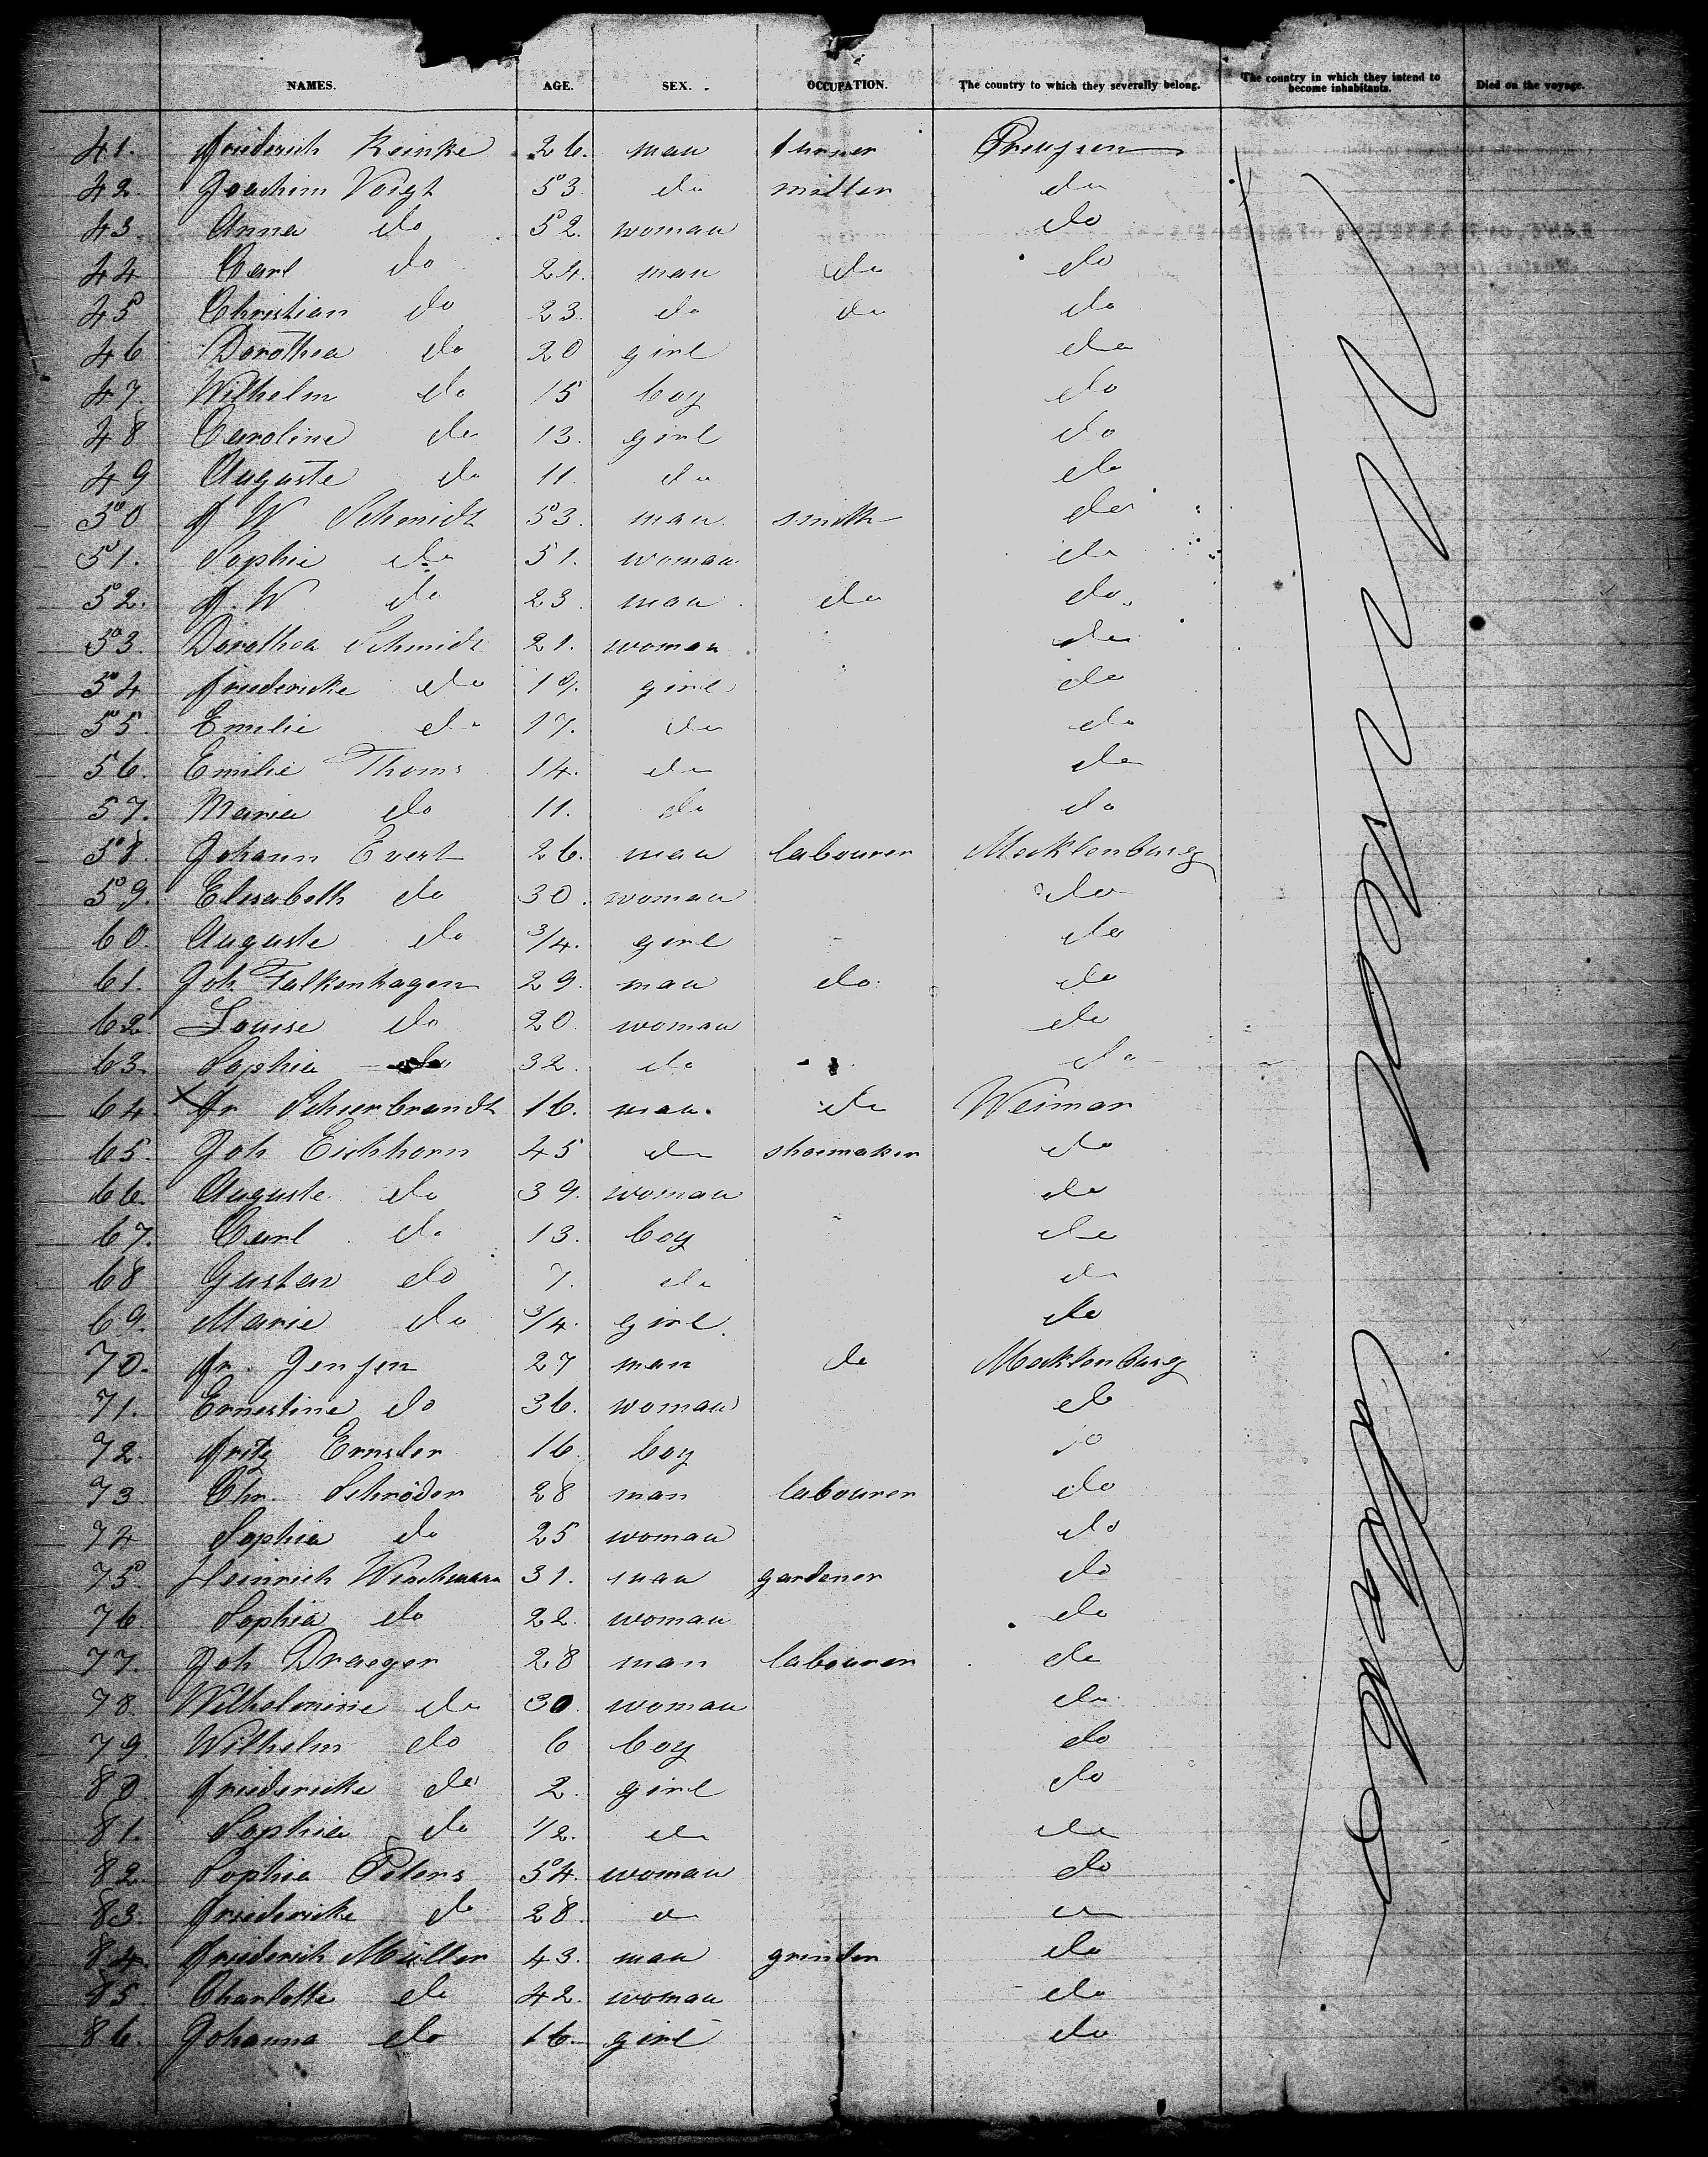 NAMES. AGE. SEX. OCCUPATION. The country to which they severally belong. The country in which they intend to become inhabitants. Died on the voyage.
41. Friederich Reinke 26. man turner Preussen
42. Joachim Voigt 53. do miller do
43. Anna do 52. woman do
44 Carl do 24. man do do
45 Christian do 23. do do do
46 Dorothea do 20 girl do
47. Wilhelm do 15 boy do
48 Caroline do 13. girl do
49 Auguste do 11. do do
50 F W Schmidt 53. man smith do
51. Sophie do 51. woman do
52. F. W do 23. man do do
53. Dorothea Schmidt 21. woman do
54 Friedericke do 19. girl do
55. Emilie do 17. do do
56. Emilie Thoms 14. do do
57. Maria do 11. do do
58. Johann Evert 26. man labourer Mecklenburg
59. Elisabeth do 30. woman do
60. Auguste do 3/4. girl do
61. Joh Falkenhagen 29. man do do
62. Louise do 20. woman do
63. Sophia do 32. do do
64. Fr Scheerbrandt 16. man do Weimar
65. Joh Eichhorn 45 do shoemaker do
66. Auguste do 39. woman do
67. Carl do 13. boy do
68 Gustav do 7. do do
69. Marie do 3/4. girl do
70. Fr. Jenssen 27 man do Mecklenburg
71. Ernestine do 36. woman do
72. Fritz Ernster 16. boy do
73 Chr. Schröder 28 man labourer do
74 Sophia do 25 woman do
75. Heinrich Wischmann 31. man gardener do
76. Sophia do 22. woman do
77. Joh Draeger 28 man labourer do
78. Wilhelmine do 30. woman do
79. Wilhelm do 6 boy do
80. Friedericke do 2. girl do
81. Sophia do 1/2. do do
82. Sophia Peters 54. woman do
83. Friedericke do 28. do do
84. Friederich Müller 43. man grinder do
85. Charlotte do 42. woman do
86. Johanna do 16. girl do
United States